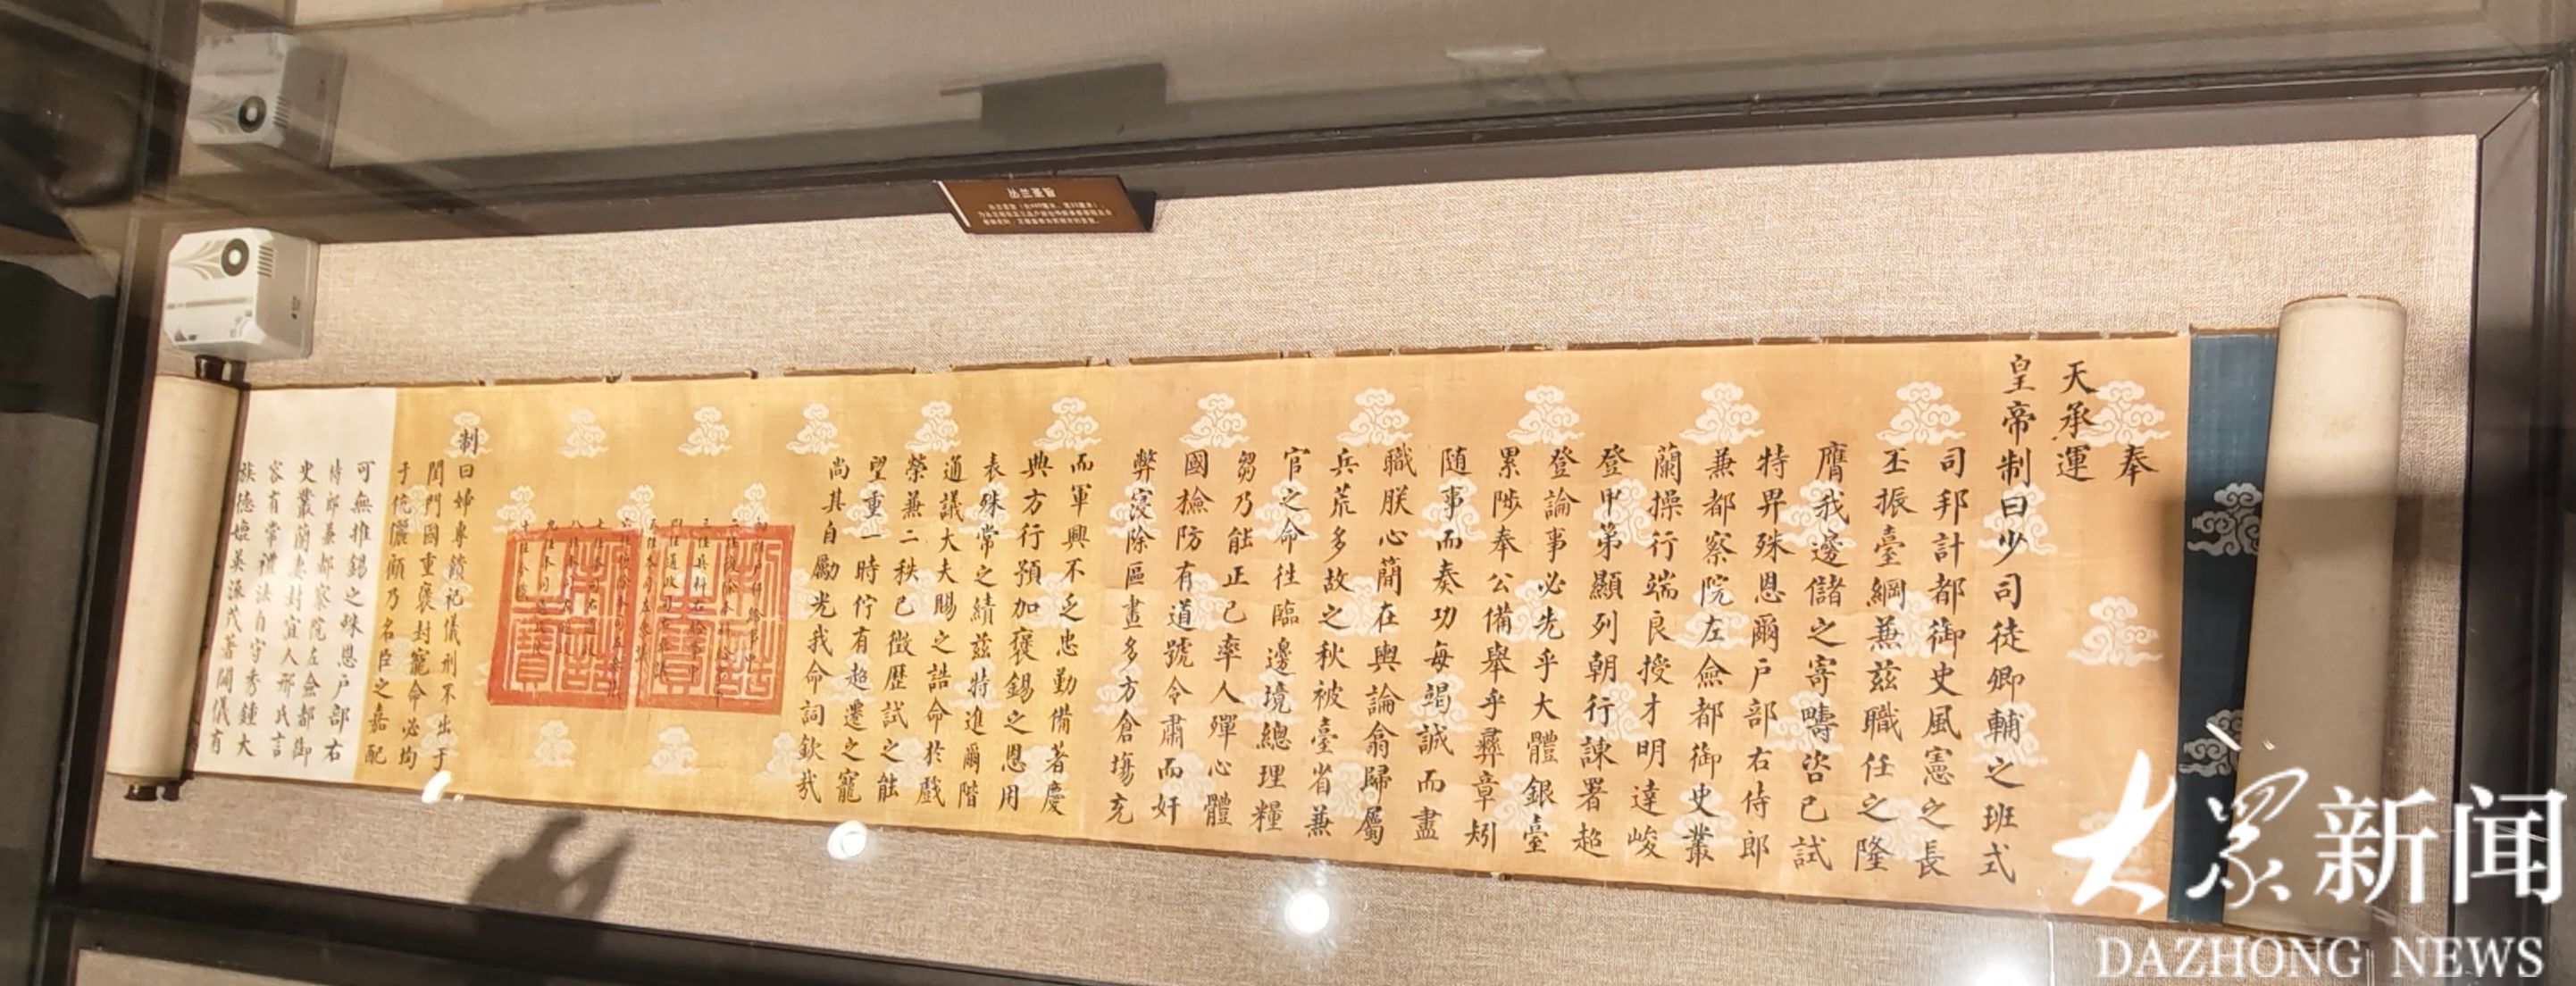 奉
天承運
皇帝制曰少司徒卿輔之班式
司邦計都御史風憲之長
丕振臺綱兼茲職任之隆
膺我邊儲之寄疇咨已試
特畀殊恩爾戶部右侍郎
兼都察院左僉都御史叢
蘭操行端良授才明達峻
登甲第顯列朝行諫署超
登論事必先乎大體銀臺
累陟奉公備舉乎彞章矧
随事而奏功每竭誠而盡
職朕心簡在輿論翕歸屬
兵荒多故之秋被臺省兼
官之命往臨邊境總理糧
芻乃能正己率人殫心體
國檢防有道號令肅而奸
弊寖除區畫多方倉塲充
而軍興不乏忠勤備著慶
典方行預加褒錫之恩用
表殊常之績茲特進爾階
通議大夫賜之誥命於戲
榮兼二秩已徵歷試之能
望重一時佇有超遷之寵
尚其自勵光我命詞欽哉
制曰婦專饋祀儀刑不出于
閨門國重褒封寵命必均
于伉儷顧乃名臣之嘉配
可無推錫之殊恩戶部右
侍郎兼都察院左僉都御
史叢蘭妻封宜人邢氏言
容有常禮法自守秀鍾大
族德媲英派茂著閫儀有
大眾新闻
DAZHONG NEWS